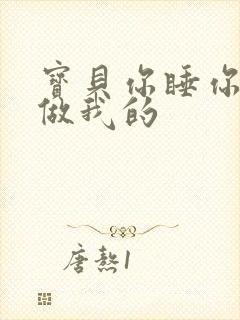 寶貝你睡你
做我的
唐熬1